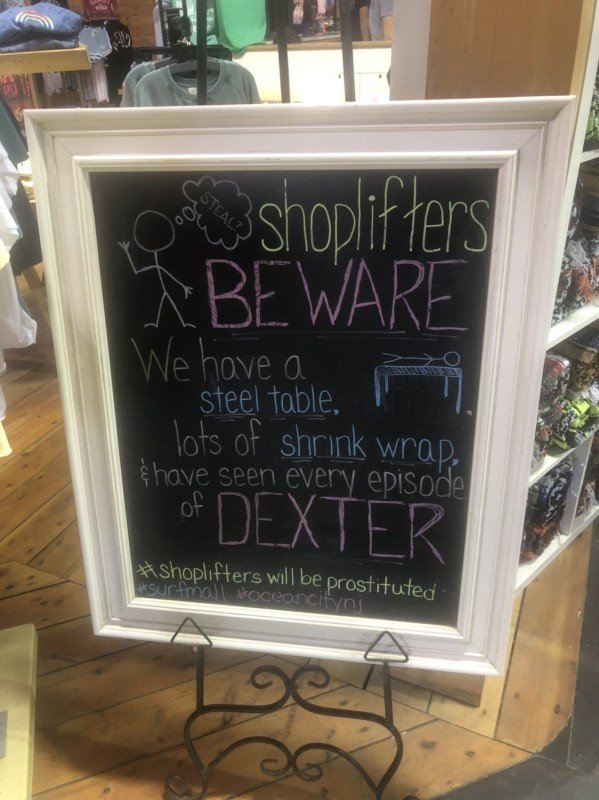 STEAL?
shoplifters
BEWARE
We have a
steel table,
lots of shrink wrap,
& have seen every episode
of DEXTER
#shoplifters will be prostituted
#surfmall #oceancitynj